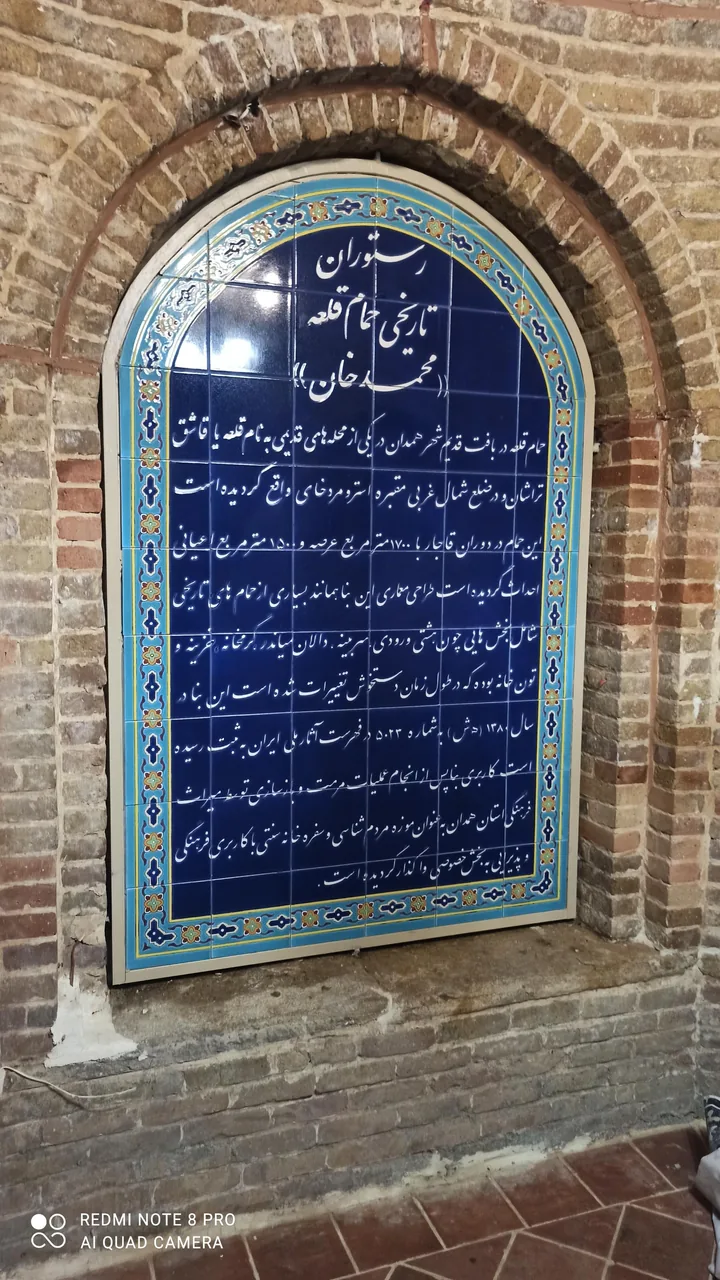 رستوران
تاریخی حمام قلعه
((محمدخان))
حمام قلعه در بافت قدیم شهر همدان در یکی از محله های قدیمی به نام قلعه یا قاشق
تراشان و در ضلع شمال غربی مقبره استرو مردخای واقع گردیده است
این حمام در دوران قاجار با ۱۷۰۰ متر مربع عرصه و ۱۵۰۰ متر مربع اعیانی
احداث گردیده است طراحی معماری این بنا همانند بسیاری از حمام های تاریخی
شامل بخش هایی چون هشتی ورودی، سربینه، دالان میاندر، گرمخانه، خزینه و
تون خانه بوده که در طول زمان دستخوش تغییرات شده است این بنا در
سال ۱۳۸۰ (ه ش) به شماره ۵۰۲۳ در فهرست آثار ملی ایران به ثبت رسیده
است. کاربری بنا پس از انجام عملیات مرمت و بازسازی توسط میراث
فرهنگی استان همدان به عنوان موزه مردم شناسی و سفره خانه سنتی با کاربری فرهنگی
و پذیرایی به بخش خصوصی واگذار گردیده است.
REDMI NOTE 8 PRO
AI QUAD CAMERA